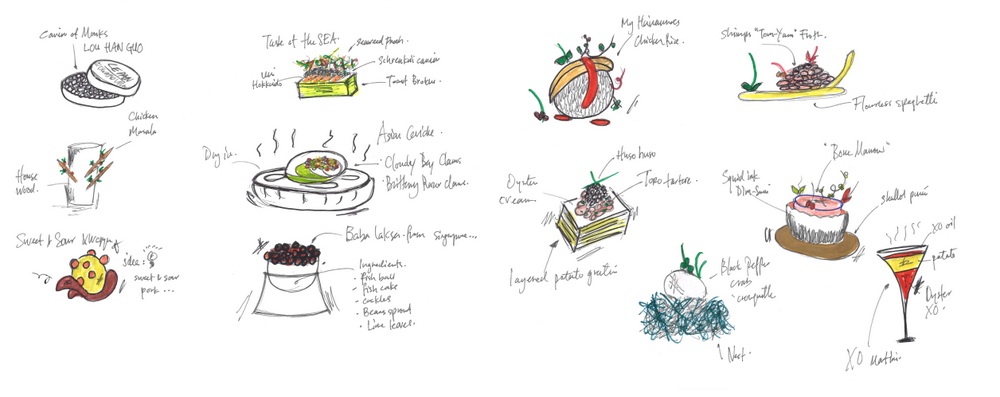 Caviar of Monks
LOU HAN GUO
Chicken
Masala
House
wood.
Sweet & Sour
idea =
sweet & sour
pork ...
Taste of the SEA.
seaweed
Schrenkii caviar
Toast Brokers
uni
Hokkaido
Dry ice.
Asian Ceviche.
Cloudy Bay Clams
Brittany Razor clams.
Baba laksa from Singapore...
Ingredients.
- Fish ball
- Fish cake
- cockles
- Beans sprout
- Lime leaves.
My Hainanese
Chicken Rice.
Shrimps "Tom-Yam" Froth.
Flourless spaghetti
Oyster
cream
Toro tartare.
Layered potato gratin
"Bone Marrow"
Squid ink
Dim-Sum
shallot puree
Black Pepper
crab
croquette
Nest.
XO oil
potato
Oyster
XO.
XO Martini.